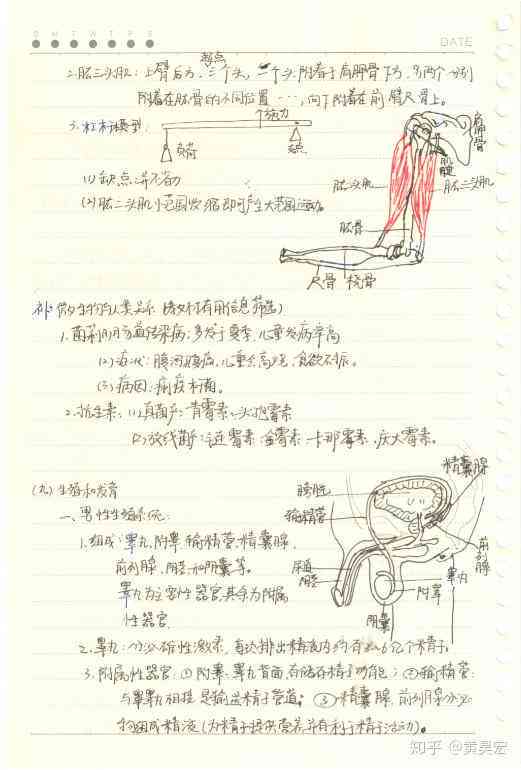 S M T W T F S
DATE
起点
2.肱三头肌:上臂后方,三个头,一个头附着于肩胛骨下方,另两个分别
附着在肱骨的不同位置……,向下附着在前臂尺骨上。
3.杠杆模型:
动力
负荷
支点
肩胛骨
肌腱
肱二头肌
肱三头肌
(1)缺点:并不省力
(2)肱二头肌小范围收缩即可产生大范围运动。
肱骨
尺骨 桡骨
补:微生物与人类关系(
1.菌痢:消化道传染病,多发于夏季,儿童发病率高
(2)症状:腹泻腹痛,儿童会高烧,食欲不振。
(3)病因:痢疾杆菌。
2.抗生素:(1)真菌产:青霉素、头孢霉素
(2)放线菌产:链霉素、金霉素、卡那霉素、庆大霉素。
精囊腺
(九)生殖和发育
膀胱
输精管
一、男性生殖系统:
1.组成:睾丸、附睾、输精管、精囊腺、
前列腺
尿道
前列腺、阴茎和阴囊等。
阴茎
睾丸
附睾
睾丸为主要性器官,其余为附属
性器官
阴囊
2.睾丸:分泌雄性激素,每次排出精液内约有2~6亿个精子。
3.附属性器官:①附睾:睾丸背面,有储存精子功能;②输精管:
与睾丸相接,是输送精子管道;③精囊腺、前列腺分泌
物组成精液(为精子提供营养,并有利于精子活动)。
知乎 @黄昊宏